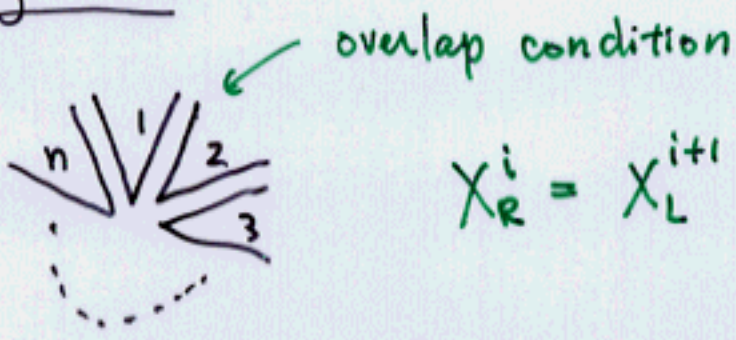 overlap condition
n 1 2 3
X_R^i = X_L^{i+1}